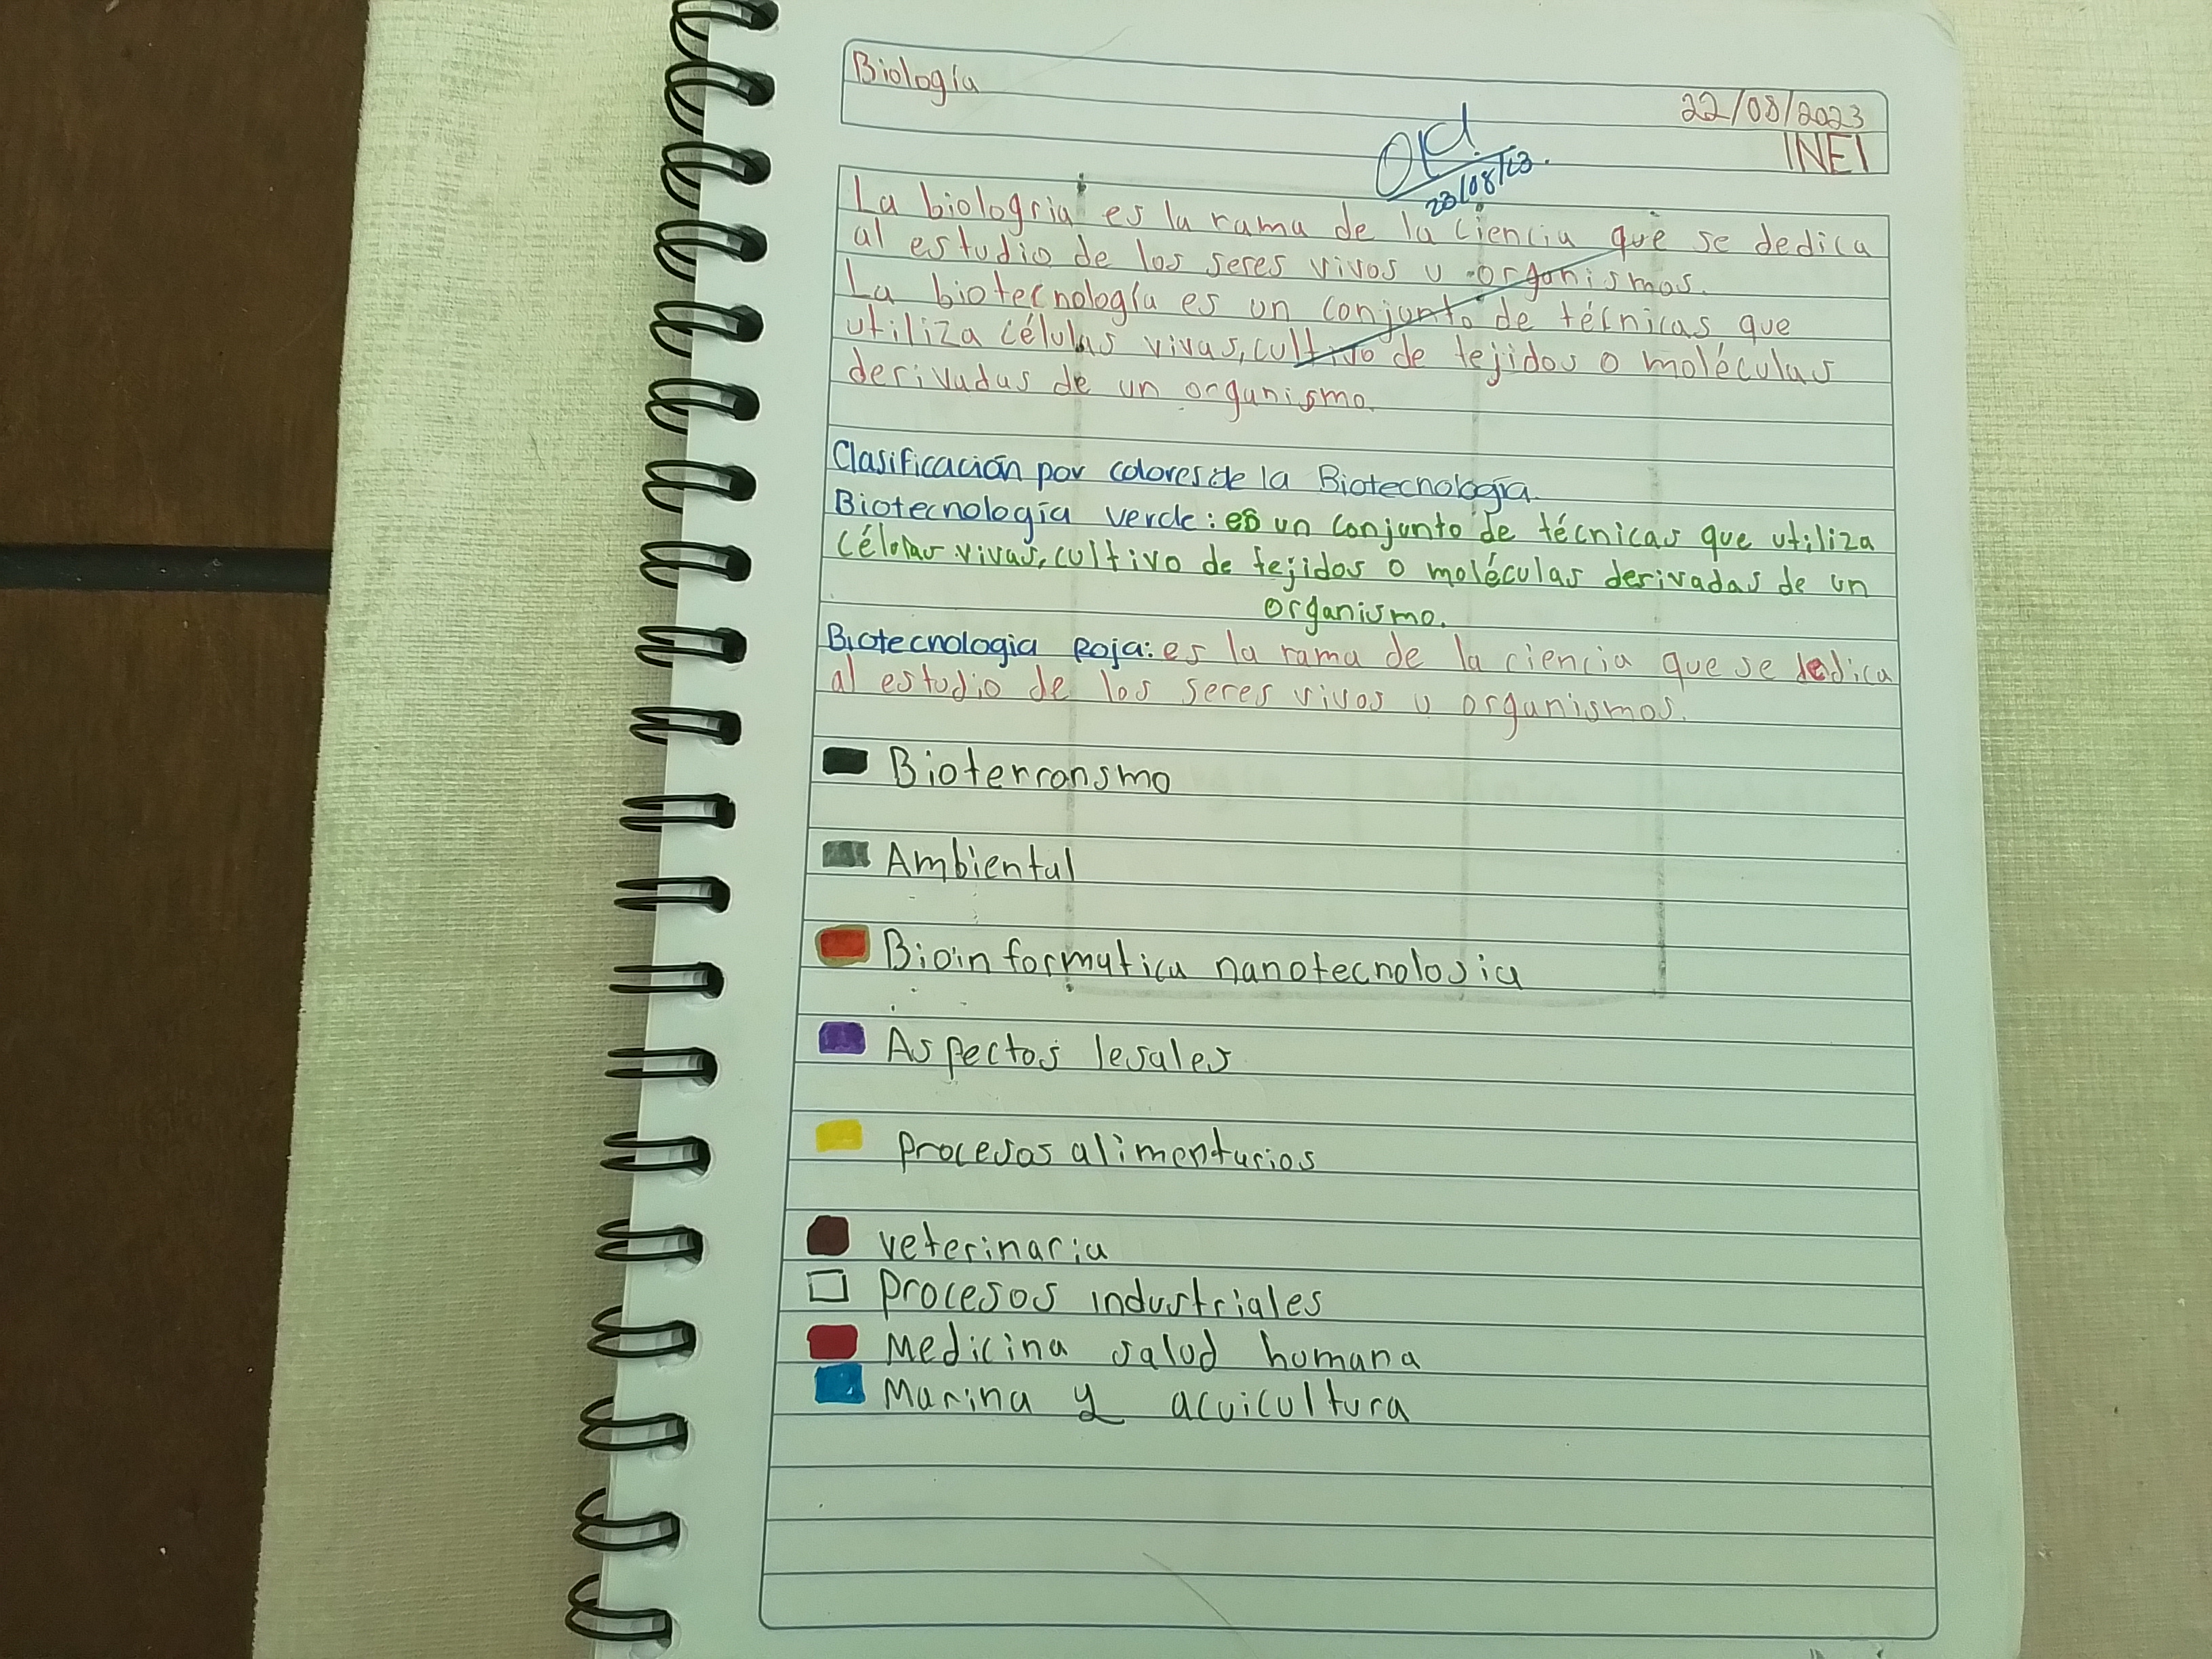 Biología
22/08/2023
INEI
23/08/23.
La biologria es la rama de la ciencia que se dedica
al estudio de los seres vivos u organismos.
La biotecnología es un conjunto de técnicas que
utiliza células vivas, cultivo de tejidos o moléculas
derivadas de un organismo.
Clasificación por colores de la Biotecnología
Biotecnología verde: es un conjunto de técnicas que utiliza
células vivas, cultivo de tejidos o moléculas derivadas de un
organismo.
Biotecnologia Roja: es la rama de la ciencia que se dedica
al estudio de los seres vivos u organismos.
Bioterrorismo
Ambiental
Bioinformatica nanotecnologia
Aspectos legales
Procesos alimentarios
veterinaria
Procesos industriales
Medicina salud humana
Marina y acuicultura